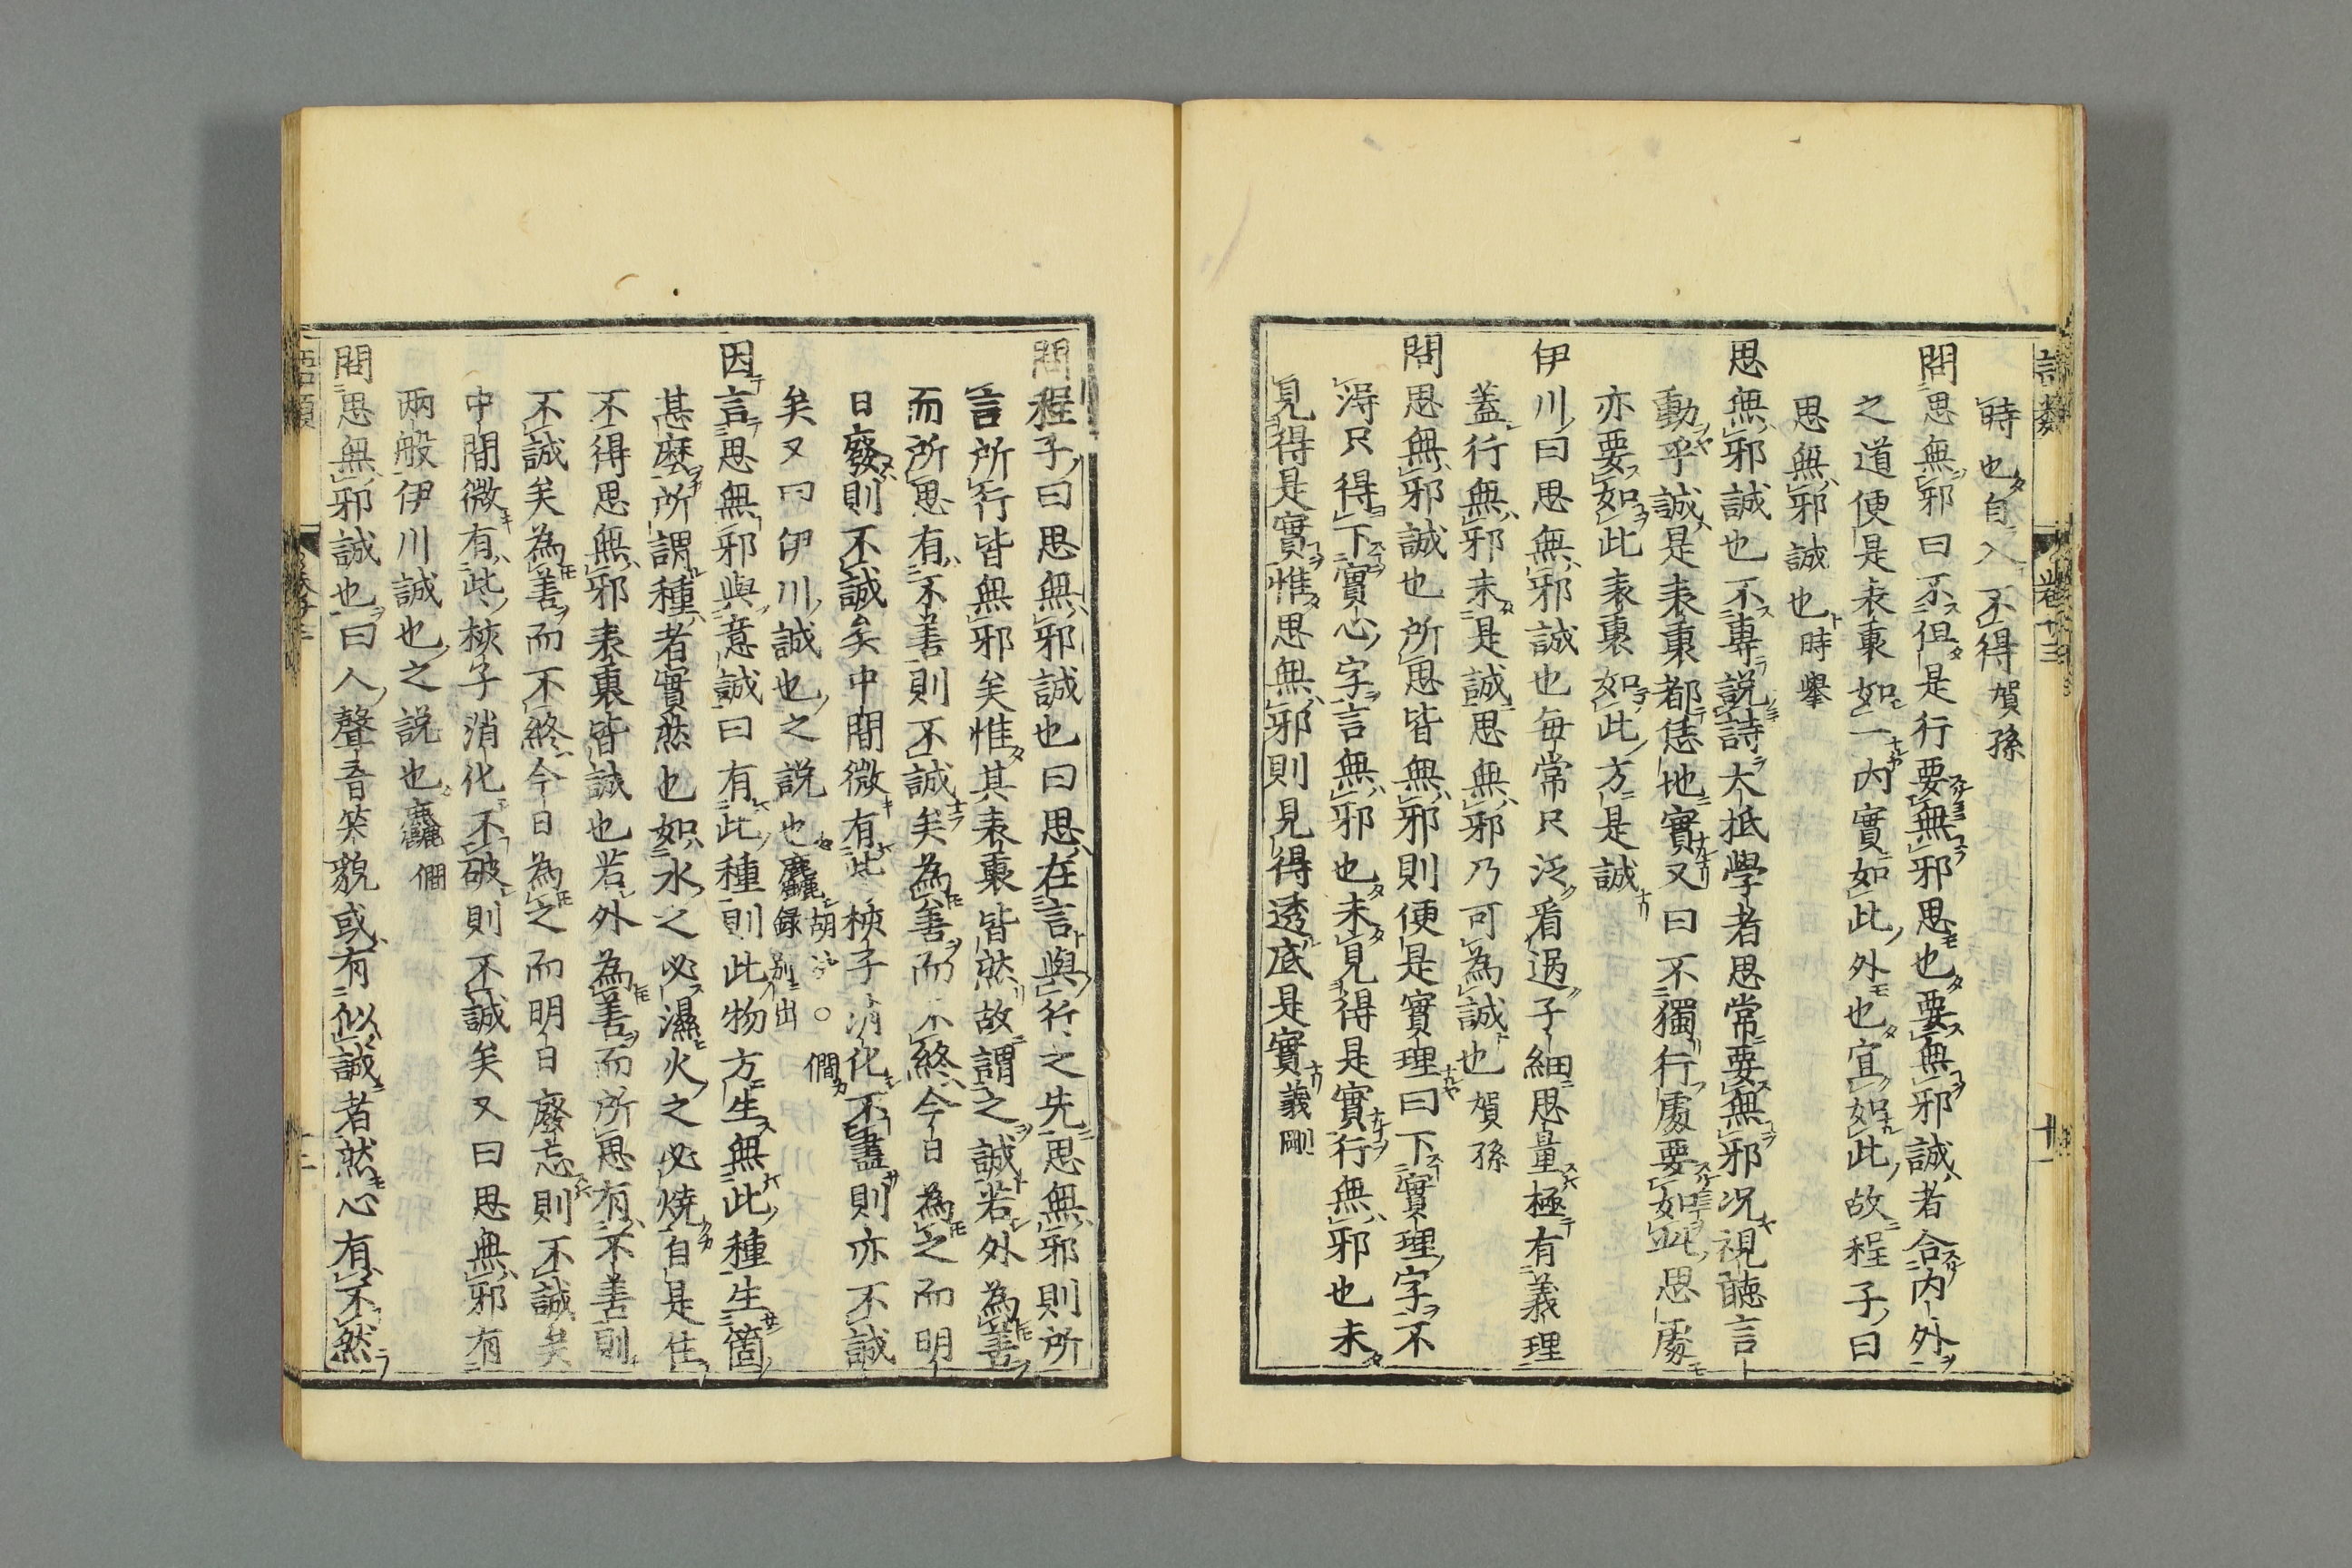 時也自入不得賀孫
問思無邪曰不但是行要無邪思也要無邪誠者合內外
之道便是表裏如一內實如此外也宜如此故程子曰
思無邪誠也時擧
思無邪誠也不專說詩大抵學者思常要無邪况視聽言
動乎誠是表裏都恁地實又曰不獨行處要如此思處
亦要如此表裏如此方是誠
伊川曰思無邪誠也每常只泛看過子細思量極有義理
蓋行無邪未是誠思無邪乃可為誠也賀孫
問思無邪誠也所思皆無邪則便是實理曰下實理字不
得只得下實心字言無邪也未見得是實行無邪也未
見得是實惟思無邪則見得透底是實義剛
問程子曰思無邪誠也曰思在言與行之先思無邪則所
言所行皆無邪矣惟其表裏皆然故謂之誠若外為善
而所思有不善則不誠矣為善而不終今日為之而明
日廢則不誠矣中間微有些核子消化不盡則亦不誠
矣又曰伊川誠也之說也麤 胡泳録別出 ○ 僩
因言思無邪與意誠曰有此種則此物方生無此種生箇
甚麼所謂種者實然也如水之必濕火之必燒自是住
不得思無邪表裏皆誠也若外為善而所思有不善則
不誠矣為善而不終今日為之而明日廢忘則不誠矣
中間微有些核子消化不破則不誠矣又曰思無邪有
兩般伊川誠也之說也麤僩
問思無邪誠也曰人聲音笑貌或有似誠者然心有不然
語類